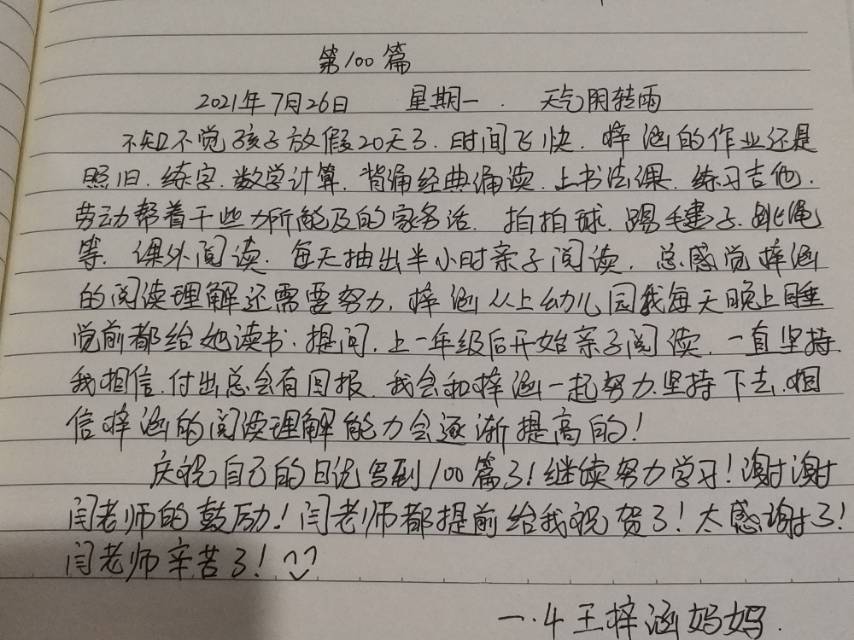 第100篇
2021年7月26日 星期一. 天气阴转雨
不知不觉孩子放假20天了.时间飞快.梓涵的作业还是
照旧.练字.数学计算.背诵经典诵读.上书法课.练习吉他.
劳动帮着干些力所能及的家务活.拍拍球.踢毽子.跳绳
等.课外阅读.每天抽出半小时亲子阅读.总感觉梓涵
的阅读理解还需要努力.梓涵从上幼儿园我每天晚上睡
觉前都给她读书.提问.上一年级后开始亲子阅读.一直坚持.
我相信.付出总会有回报.我会和梓涵一起努力坚持下去.相
信梓涵的阅读理解能力会逐渐提高的!
庆祝自己的日记写到100篇了!继续努力学习!谢谢
闫老师的鼓励!闫老师都提前给我祝贺了!太感谢了!
闫老师辛苦了!
一.4王梓涵妈妈.